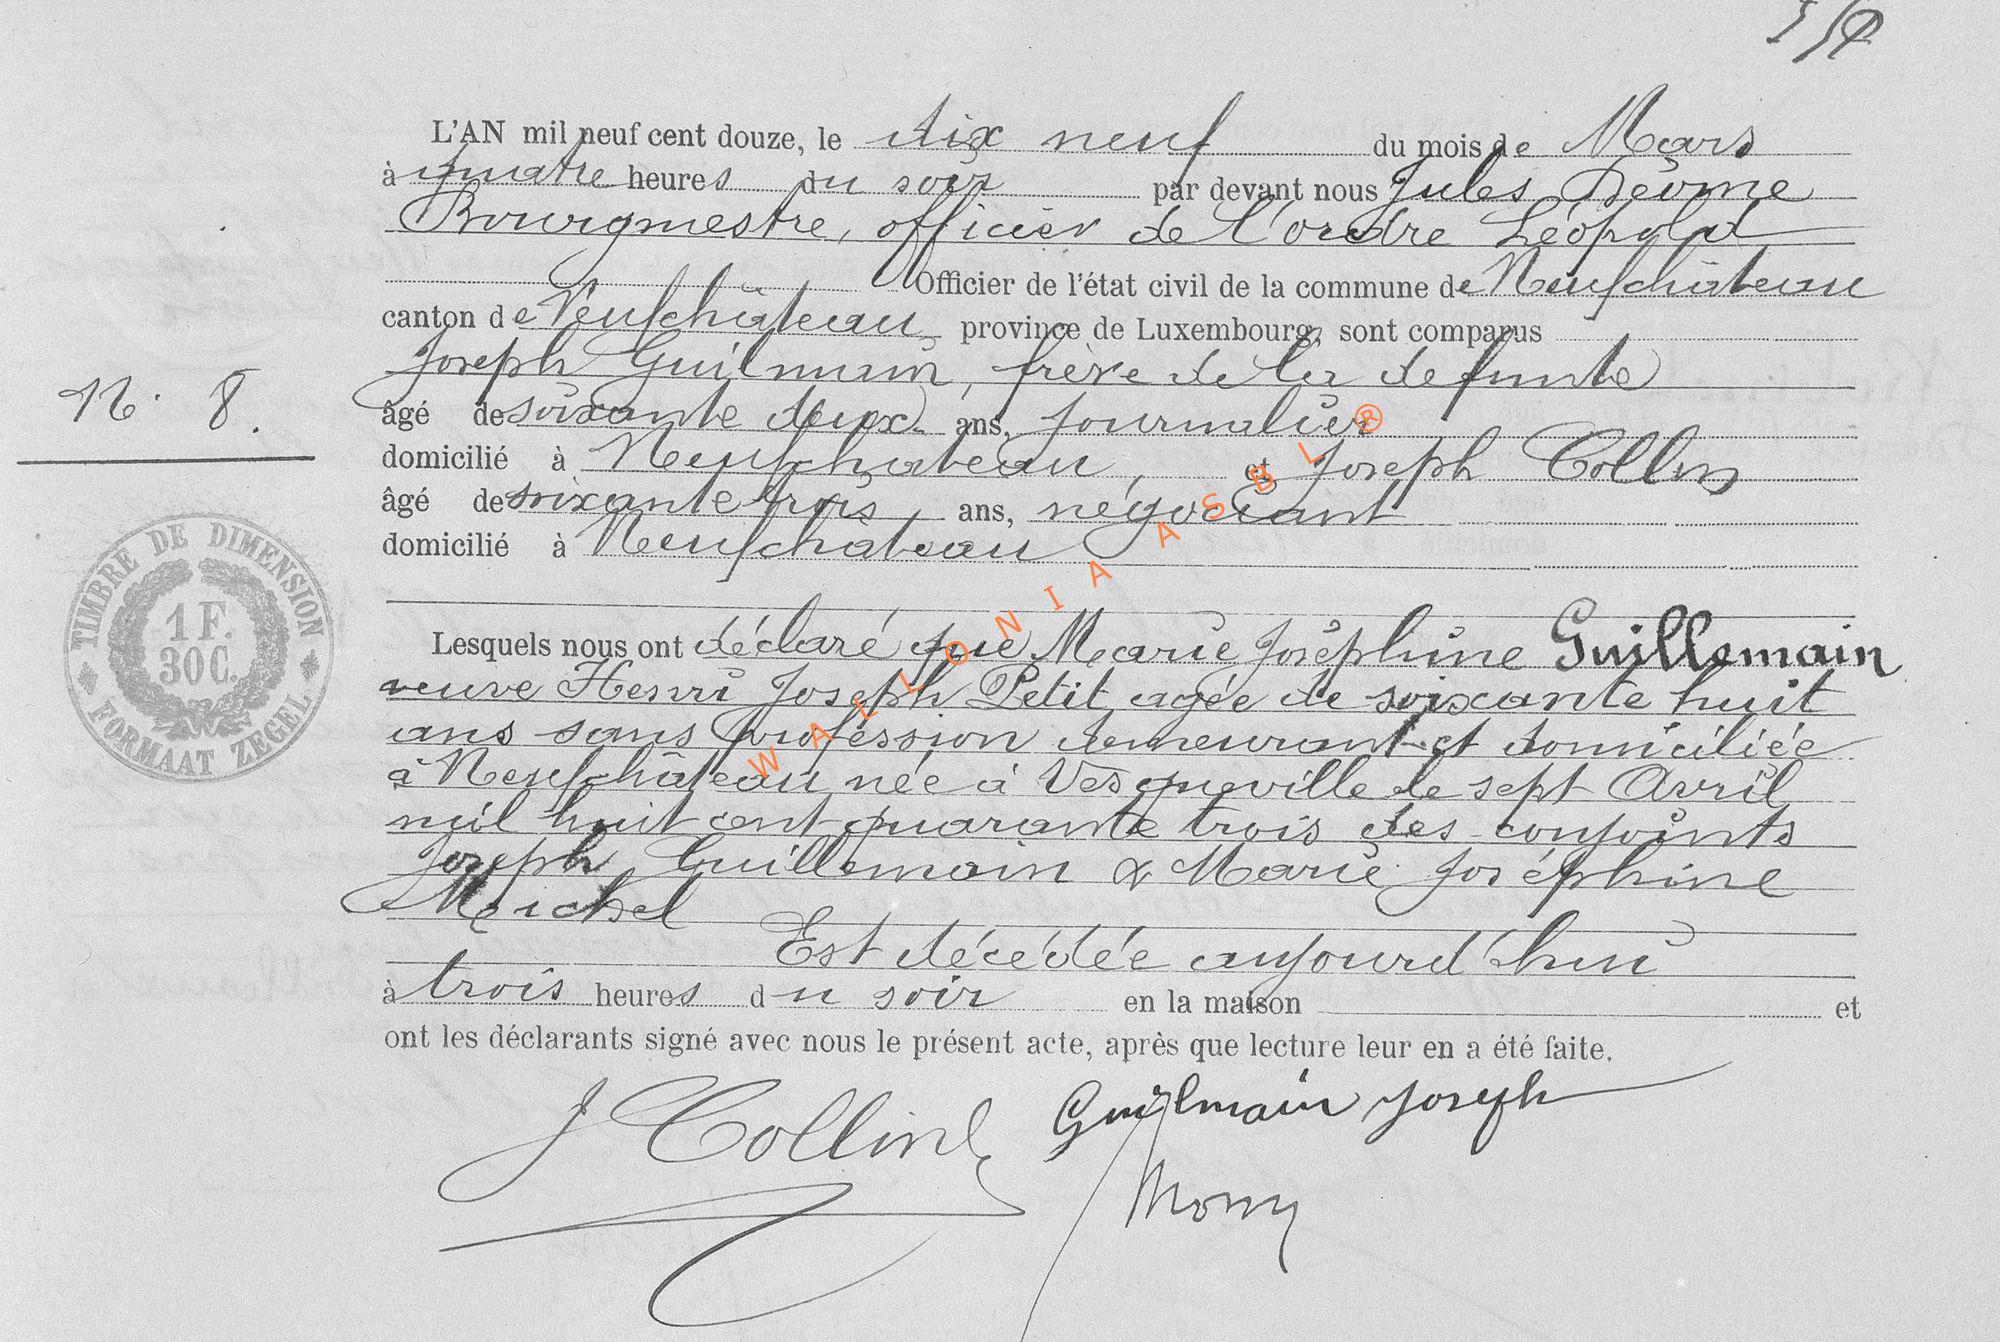 L'AN mil neuf cent douze, le dix neuf du mois de Mars
à quatre heures du soir par devant nous Jules
Bourgmestre, officier de l'ordre Léopold
Officier de l'état civil de la commune de Neufchâteau
canton de Neufchâteau province de Luxembourg, sont comparus
Joseph Guilmain, frère de la defunte
âgé de soixante deux ans, journalier
N. 8.
domicilié à Neufchateau et Joseph Collin
âgé de soixante trois ans, négociant
domicilié à Neufchateau
TIMBRE DE DIMENSION
1 F.
30 C.
FORMAAT ZEGEL
Lesquels nous ont déclaré que Marie Joséphine Guillemain
veuve Henri Joseph Petit agée de soixante huit
ans sans profession demeurant et domiciliée
à Neufchâteau née à Vesqueville le sept Avril
mil huit cent quarante trois des conjoints
Joseph Guillemain & Marie Joséphine
Michel
Est décédée aujourd'hui
à trois heures du soir en la maison et
ont les déclarants signé avec nous le présent acte, après que lecture leur en a été faite.
J Collin Guilmain Joseph
WALLONIA ASBL®